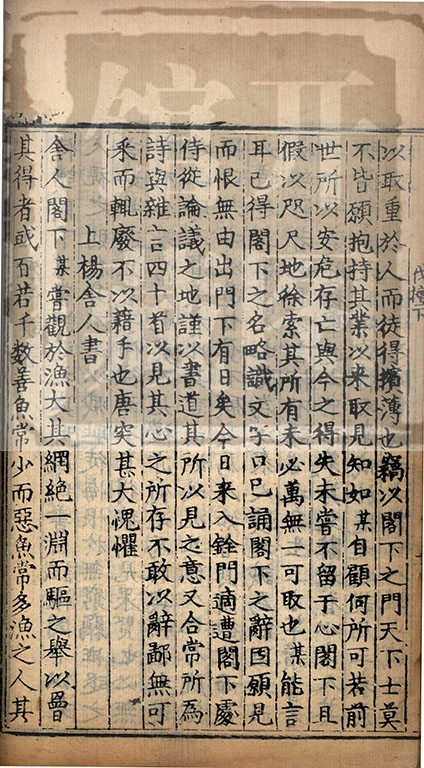 以取重於人而徒得擯薄也竊以閣下之門天下士莫
不皆願抱持其業以來取見知如某自顧何所可若前
世所以安危存亡與今之得失未嘗不留于心閣下且
假以咫尺地徐索其所有未必萬無一可取也某能言
耳已得閣下之名略識文字口已誦閣下之辭固願見
而恨無由出門下有日矣今日來入銓門適遭閣下處
侍從論議之地謹以書道其所以見之意又合常所為
詩與雜言四十首以見其心之所存不敢以辭鄙無可
采而輒廢不以藉手也唐突某大愧懼
上楊舍人書
舍人閣下某嘗觀於漁大其網絕一淵而驅之舉以罾
其得者或百若千数善魚常少而惡魚常多漁之人其